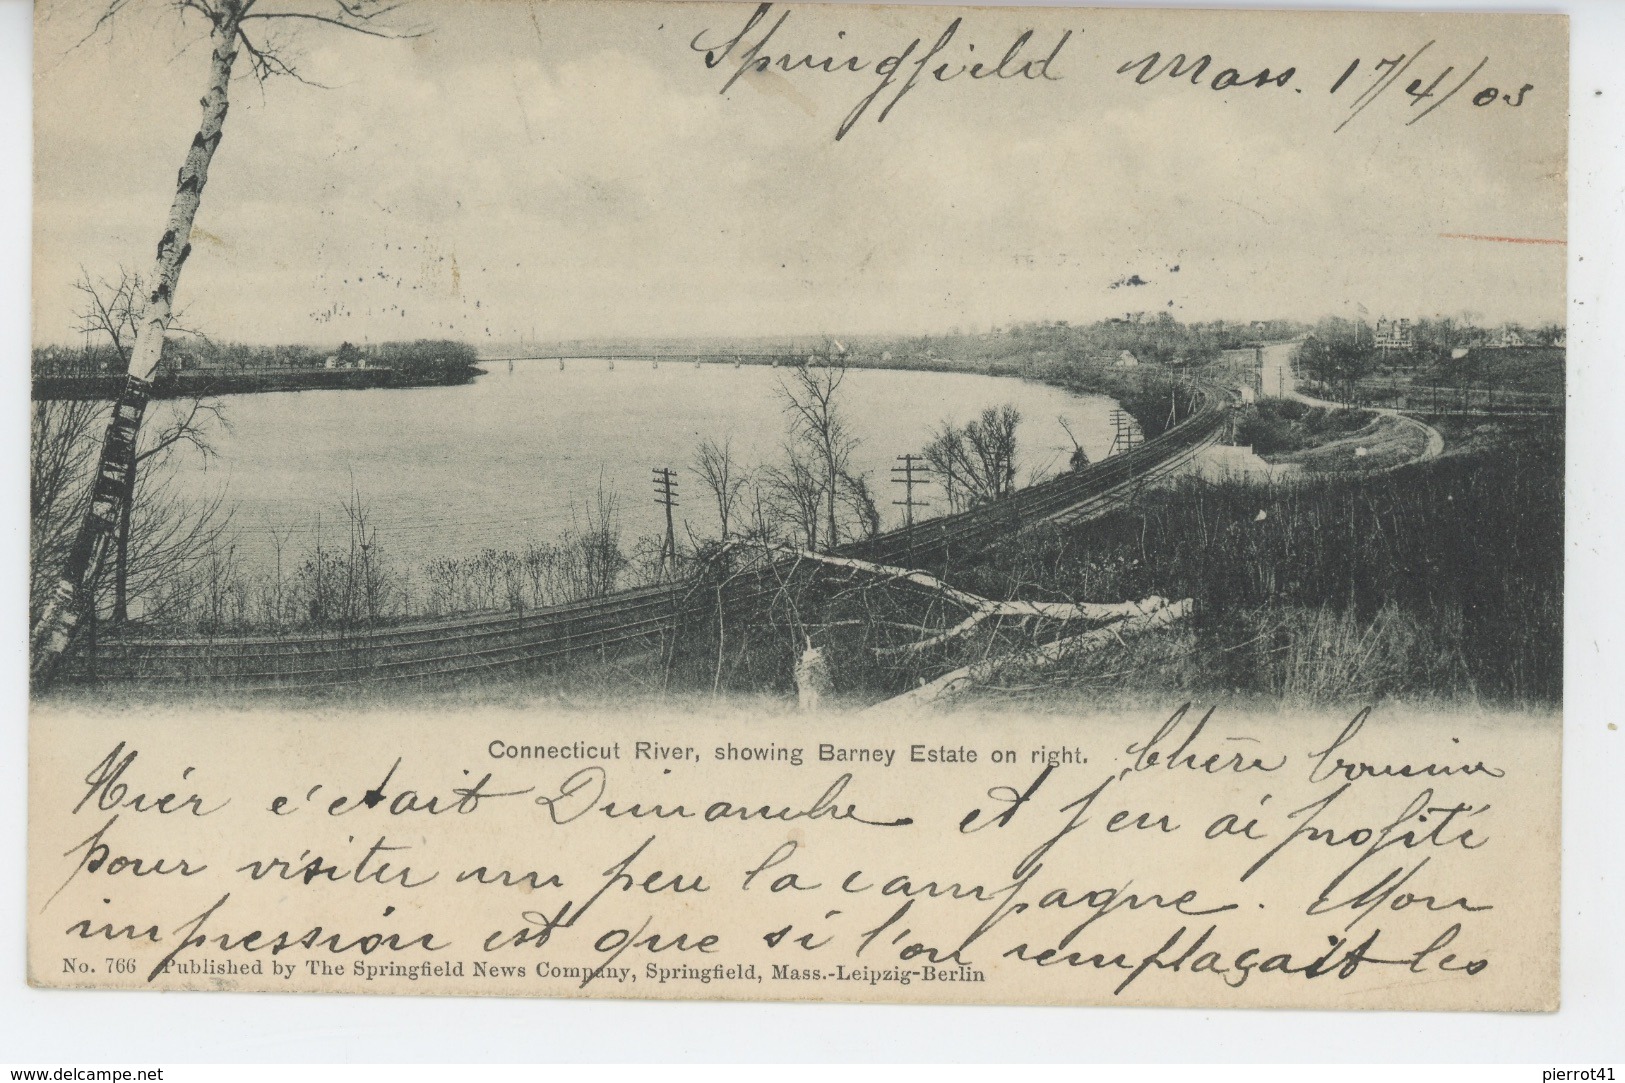 Springfield Mass. 17/4/05
Connecticut River, showing Barney Estate on right.
Chère cousine
Hier c'était Dimanche et j'en ai profité
pour visiter un peu la campagne. Mon
impression est que si l'on remplaçait les
No. 766 Published by The Springfield News Company, Springfield, Mass.-Leipzig-Berlin
www.delcampe.net
pierrot41